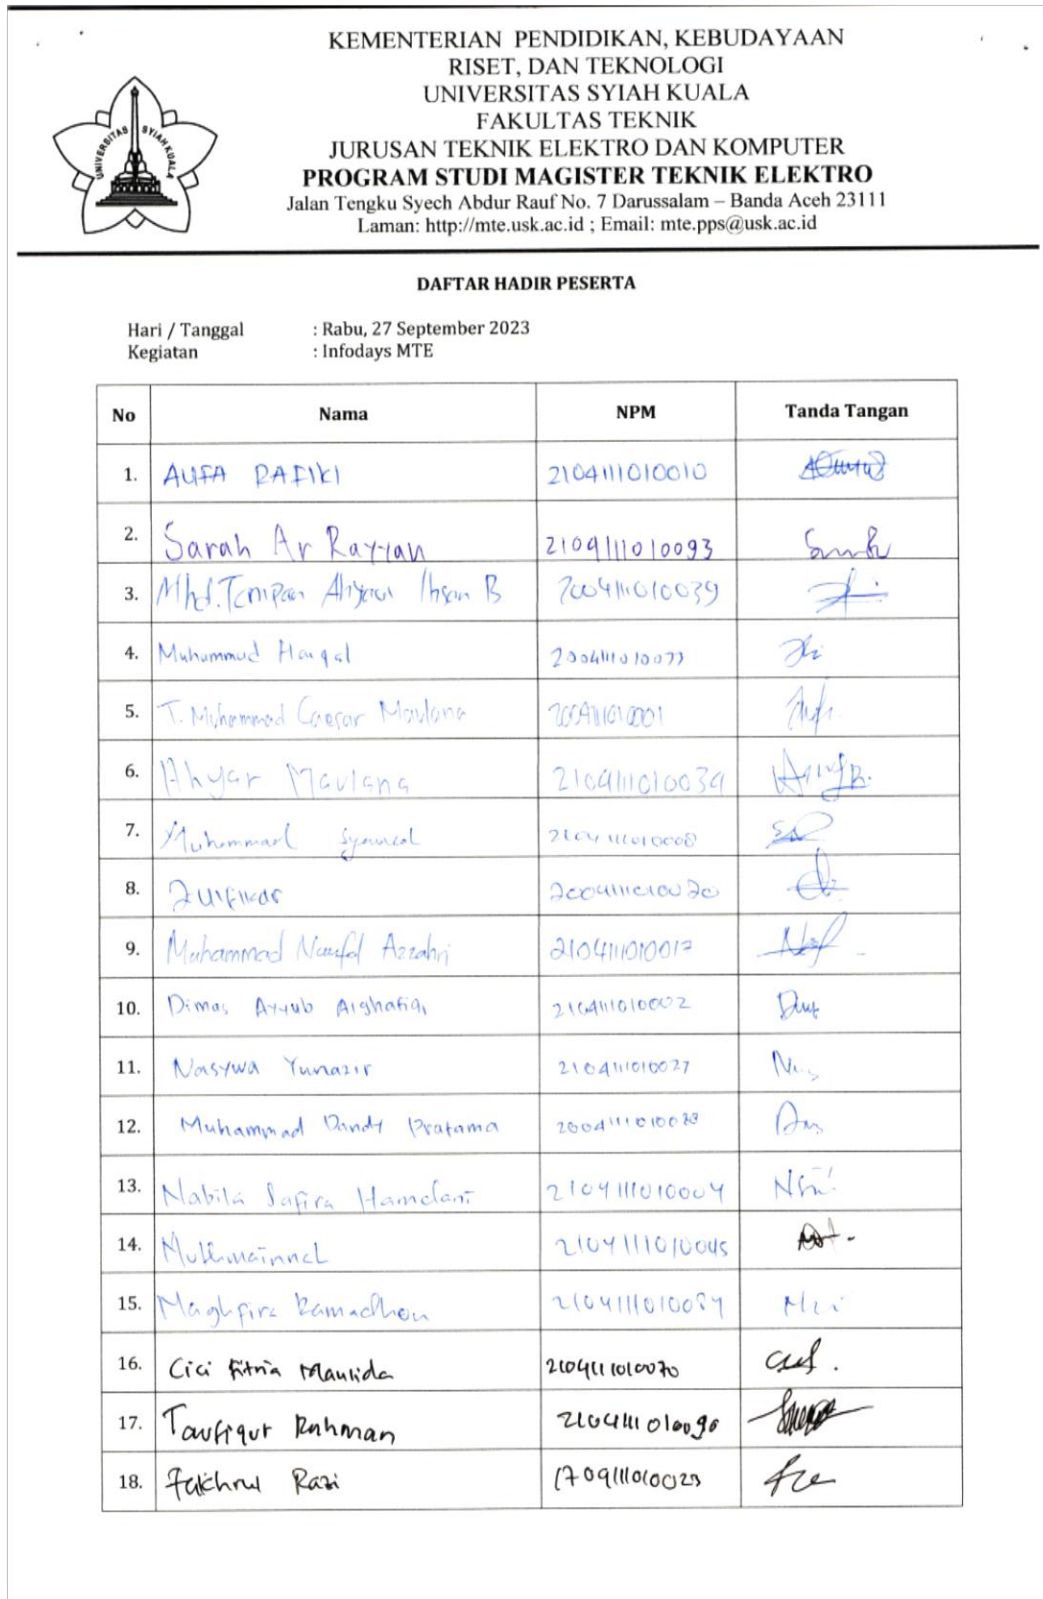 KEMENTERIAN PENDIDIKAN, KEBUDAYAAN
RISET, DAN TEKNOLOGI
UNIVERSITAS SYIAH KUALA
FAKULTAS TEKNIK
JURUSAN TEKNIK ELEKTRO DAN KOMPUTER
PROGRAM STUDI MAGISTER TEKNIK ELEKTRO
Jalan Tengku Syech Abdur Rauf No. 7 Darussalam – Banda Aceh 23111
Laman: http://mte.usk.ac.id ; Email: mte.pps@usk.ac.id
UNIVERSITAS SYIAH KUALA
DAFTAR HADIR PESERTA
Hari / Tanggal : Rabu, 27 September 2023
Kegiatan : Infodays MTE
No Nama NPM Tanda Tangan
1. AUFA RAFIKI 2104111010010
2. Sarah Ar Rayyan 2104111010093
3. Mhd. Ihsan B 2004111010039
4. Muhammad Haiqal
5. T. Muhammad Caesar Maulana 2004111010001
6. Ahyar Maulana 2104111010039
7. Muhammad 2104111010008
8. Zulfikar 2004111010020
9. Muhammad Naufal Azzahri 2104111010017
10. Dimas Ayyub Alghafiqi 2104111010002
11. Nasywa Yunazir 2104111010027
12. Muhammad Dandy Pratama
13. Nabila Safira Hamdani 2104111010004
14. 2104111010045
15. Maghfira Ramadhan
16. Cici Fitria Maulida 2104111010070
17. Taufiqur Rahman 2104111010090
18. Fakhrul Razi 1704111010023